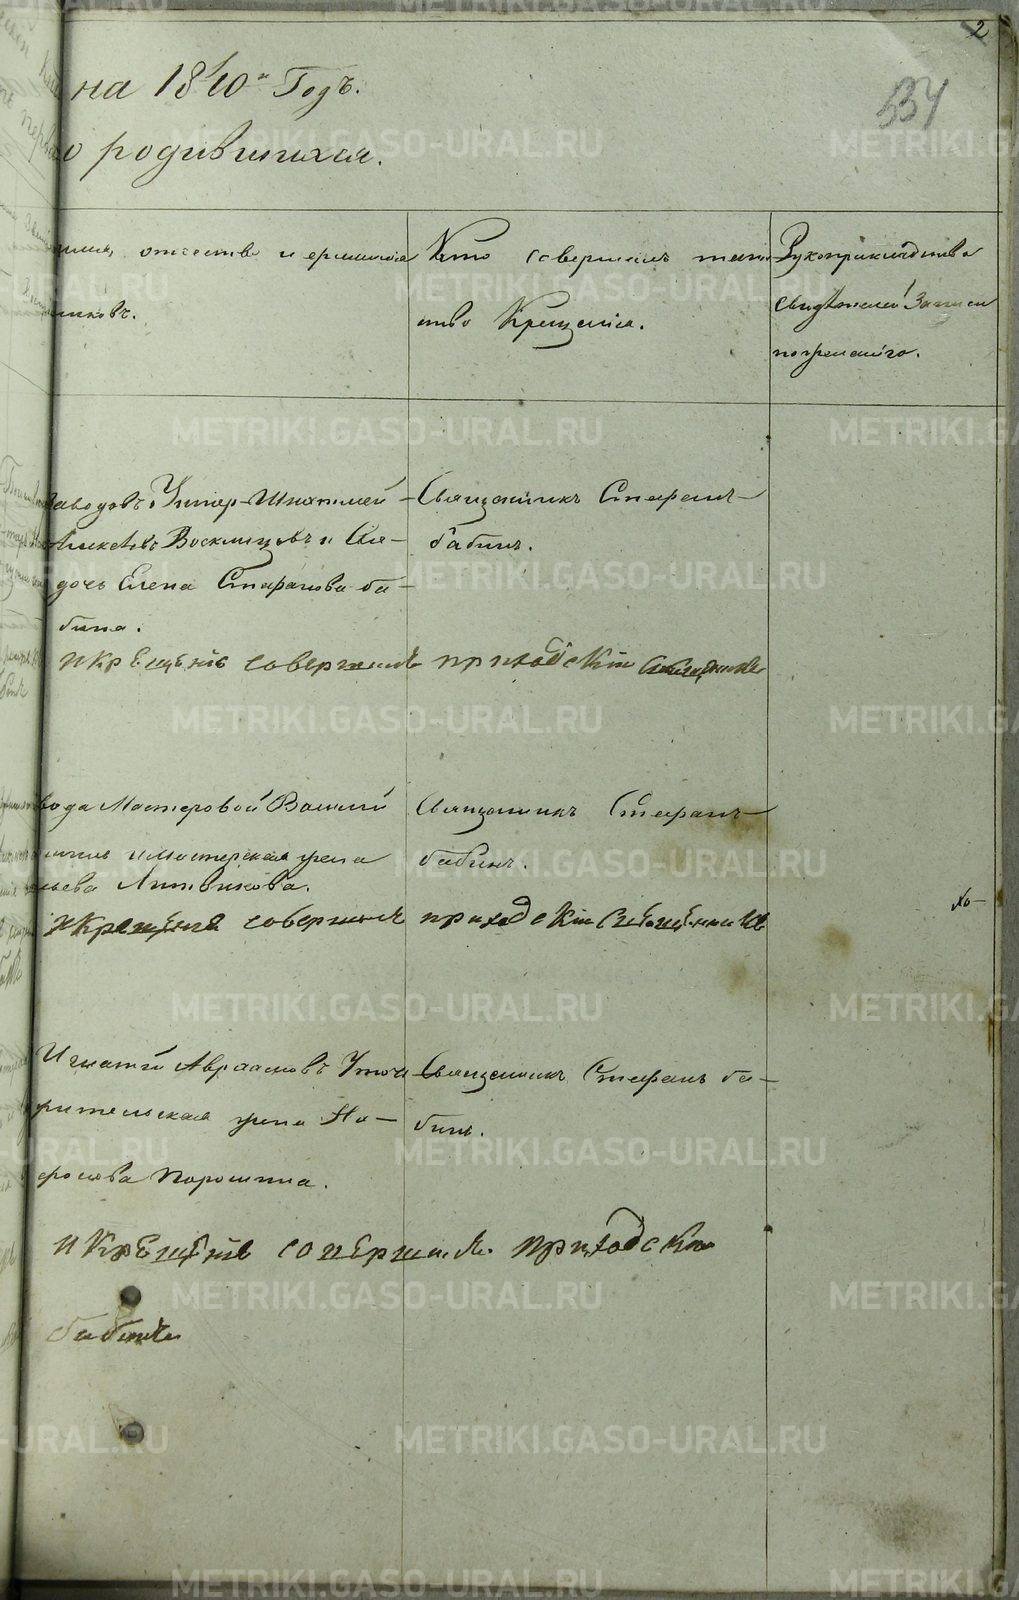 2
534
на 1840й Годъ.
о родившихся.
отечество и фамилия
никовъ.
Кто совершалъ таин
ство Крещенiя.
Рукоприкладство
свидѣтелей Записи
по желанiю.
заводовъ Унтер-Шихтмей-
Алексѣевъ Восклицовъ и Свя-
дочь Елена Стефанова Ба-
бина.
Священникъ Стефанъ
бабинъ.
и крещенiе совершилъ приходскiй священникъ
вода Мастеровой Василiй
и Мастерская жена
льева Литвинова.
Священникъ Стефанъ
бабинъ.
и крещенiе совершилъ приходскiй священникъ
хо-
Игнатiй Авраамовъ
рительская жена На-
фросова Порошина.
Священникъ Стефанъ ба-
бинъ.
и крещенiе совершилъ приходскiй
бабинъ
METRIKI.GASO-URAL.RU